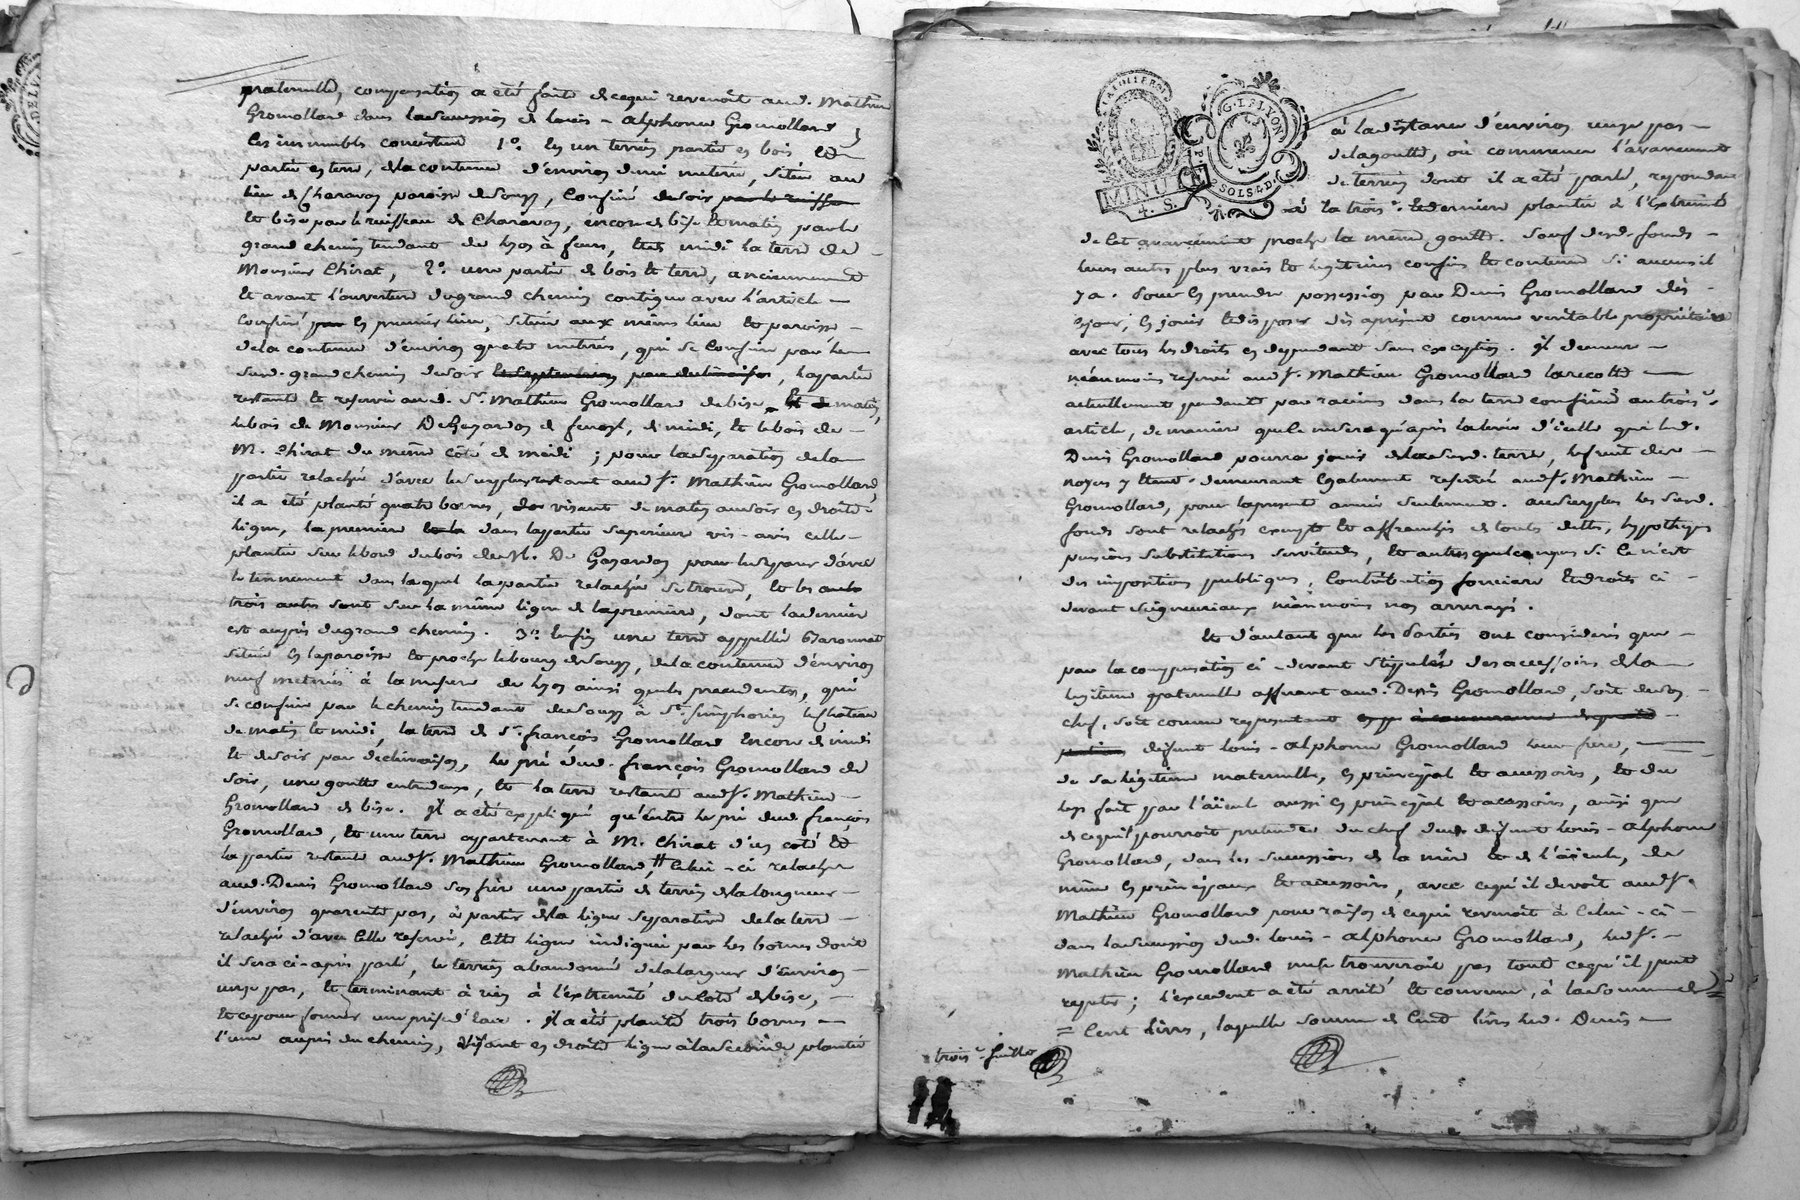 paternelle, compensation a été faite de ce qui revenoit aud. Mathieu
Gromollard dans la succession de Louis-Alphonse Gromollard,
les immeubles consistent 1º. en un terrein partie en bois et
partie en terre, de la contenue d'environ demi meterée, situé au
lieu de Charavon paroisse de Souzy, confiné de soir par le ruisseau
et bise par le ruisseau de Charavon, encore de bise et matin par le
grand chemin tendant de Lyon à feurs, et midi la terre de
Monsieur Chirat, 2º. une partie de bois et terre, anciennement
et avant l'ouverture du grand chemin contigue avec l'article
confiné en premier lieu, située aux mêmes lieu et paroisse
de la contenue d'environ quatre meterées, qui se confine par le
susd. grand chemin de soir, la partie
restante et reservée aud. Sr. Mathieu Gromollard de bise, et de matin,
le bois de Monsieur De Gazanson de, de midi, et le bois de
M. Chirat du même côté de midi ; pour la separation de la
partie relachée d'avec le surplus restant aud. Sr. Mathieu Gromollard,
il a été planté quatre bornes, visant de matin au soir en droite
ligne, la premiere dans la partie superieure vis-avis celle
plantée sur le bord du bois de M. De Gazanson pour le separer d'avec
le tennement dans lequel la partie relachée se trouve, et les
trois autres sont sur la même ligne de la premiere, dont la derniere
est auprès du grand chemin. 3º. Enfin une terre appellée Baronnat
située en la paroisse et proche le bourg de Souzy, de la contenue d'environ
neuf meterées à la mesure de Lyon ainsi que les precedentes, qui
se confine par le chemin tendant de Souzy à St. Simphorien le Chateau
de matin et midi, la terre de Sr. françois Gromollard encore de midi
et de soir par declinaison, le pré dud. françois Gromollard de
soir, une goutte entredeux, et la terre restante aud. Sr. Mathieu
Gromollard de bise. Il a été expliqué qu'entre le pré dud. françois
Gromollard, et une terre appartenant à M. Chirat d'un coté et
la partie restante aud. Sr. Mathieu Gromollard, celui-ci relache
aud. Denis Gromollard son frere une partie de terrein de la longueur
d'environ quarente pas, à partir de la ligne separative de la terre
relachée d'avec celle reservée, cette ligne indiquée par les bornes dont
il sera ci-après parlé, le terrein abandonné de la largeur d'environ
onze pas, et terminant à rien à l'extremité du coté de bise,
et ce pour former une prise d'eau. Il a été planté trois bornes
l'une auprès du chemin, visant en droite ligne à la seconde plantée
LA TOLLEROI
MINUTE
4. S.
G. LE LYON
SOLS & D.
à la distance d'environ onze pas
de la goutte, où commence l'avancement
de terrein dont il a été parlé, repondant
à la trois.e et derniere plantée à l'extremité
de cet avancement proche la même goutte. Sauf desd. fonds
leurs autres plus vrais et legitimes confins et contenue si aucuns il
y a. Pour en prendre possession par Denis Gromollard dès
ce jour, en jouir et disposer dès apresent comme veritable propriétaire
avec tous les droits en dependant sans exception. Il demeure
néanmoins reservé aud. Sr. Mathieu Gromollard la recolte
actuellement pendante par racines dans la terre confinée au trois.e
article, de maniere que ce ne sera qu'après la levée d'icelle que led.
Denis Gromollard pourra jouir de lad. terre, le fruit des
noyers y étant demeurant egalement reservé aud. Sr. Mathieu
Gromollard, pour la presente année seulement. au surplus les susd.
fonds sont relachés exempts et affranchis de toutes dettes, hypotheques
pensions substitutions servitudes, et autres quelconques si ce n'est
des impositions publiques, contribution fonciere et droits ci
devant seigneuriaux néanmoins non arreragés.
Et d'autant que les Parties ont consideré que
par la compensation ci-devant stipulée des accessoires de la
legitime paternelle afferant aud. Denis Gromollard, soit de son
chef, soit comme representant
defunt Louis-Alphonse Gromollard leur frere,
de sa légitime maternelle, en principal et accessoires, et du
legs fait par l'aïeule aussi en principal et accessoires, ainsi que
de ce qu'il pourroit pretendre du chef dud. defunt Louis-Alphonse
Gromollard, dans les successions de la mere et de l'aïeule, de
même en principaux et accessoires, avec ce qu'il devoit aud. Sr.
Mathieu Gromollard pour raison de ce qui revenoit à celui-ci
dans la succession dud. Louis-Alphonse Gromollard, led. Sr.
Mathieu Gromollard ne se trouveroit pas tout ce qu'il peut
repeter ; l'excedent a été arreté et convenu, à la somme de
cent livres, laquelle somme de cent livres led. Denis
trois.e feuille